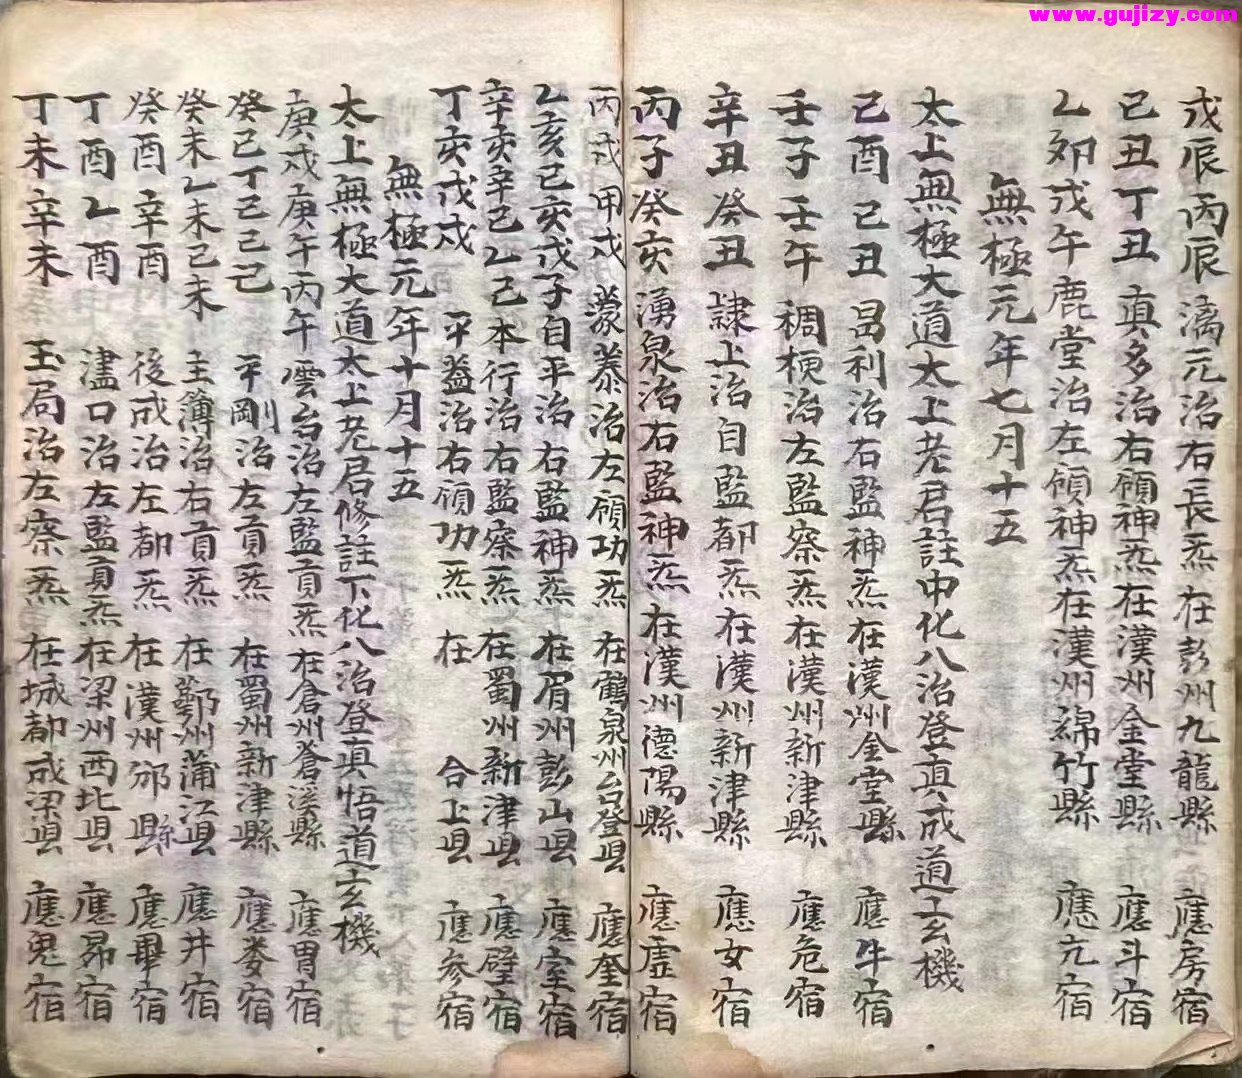 www.gujizy.com
戊辰丙辰 漓元治右長炁 在彭州九龍縣 應房宿
己丑丁丑 真多治右領神炁在漢州金堂縣 應斗宿
乙夘戊午鹿堂治左領神炁在漢州綿竹縣 應亢宿
無極元年七月十五
太上無極大道太上老君註中化八治登真成道玄機
己酉 己丑 昌利治右監神炁在漢州金堂縣 應牛宿
壬子 壬午 稠梗治左監察炁在漢州新津縣 應危宿
辛丑 癸丑 隸上治自監都炁在漢州新津縣 應女宿
丙子癸亥湧泉治右監神炁在漢州德陽縣 應虛宿
丙戌 甲戌 濛蓁治左領功炁 在鶴泉州台登县 應奎宿
乙亥己亥戊子自平治右監神炁 在眉州彭山县 應室宿
辛亥辛巳乙己本行治右監察炁在蜀州新津县 應壁宿
丁亥戊戌 平蓋治右領功炁 在 合上县 應参宿
無極元年十月十五
太上無極大道太上老君修註下化八治登真悟道玄機
庚戌庚午丙午雲台治左監貢炁在倉州蒼溪縣 應胃宿
癸己丁己己己 平剛治左貢炁 在蜀州新津縣 應娄宿
癸未乙未己未 主簿治右貢炁 在鄞州蒲江县 應井宿
癸酉 辛酉 後成治左都炁 在漢州邠縣 應畢宿
丁酉乙酉 濜口治左監貢炁在梁州西北县 應昴宿
丁未辛未 玉局治左察炁 在城都成梁县 應鬼宿